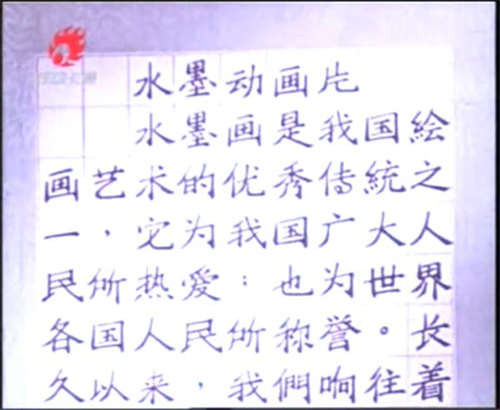 水墨动画片
水墨画是我国絵
画艺术的优秀传統之
一，它为我国广大人
民所热爱；也为世界
各国人民所称誉。长
久以来，我們响往着